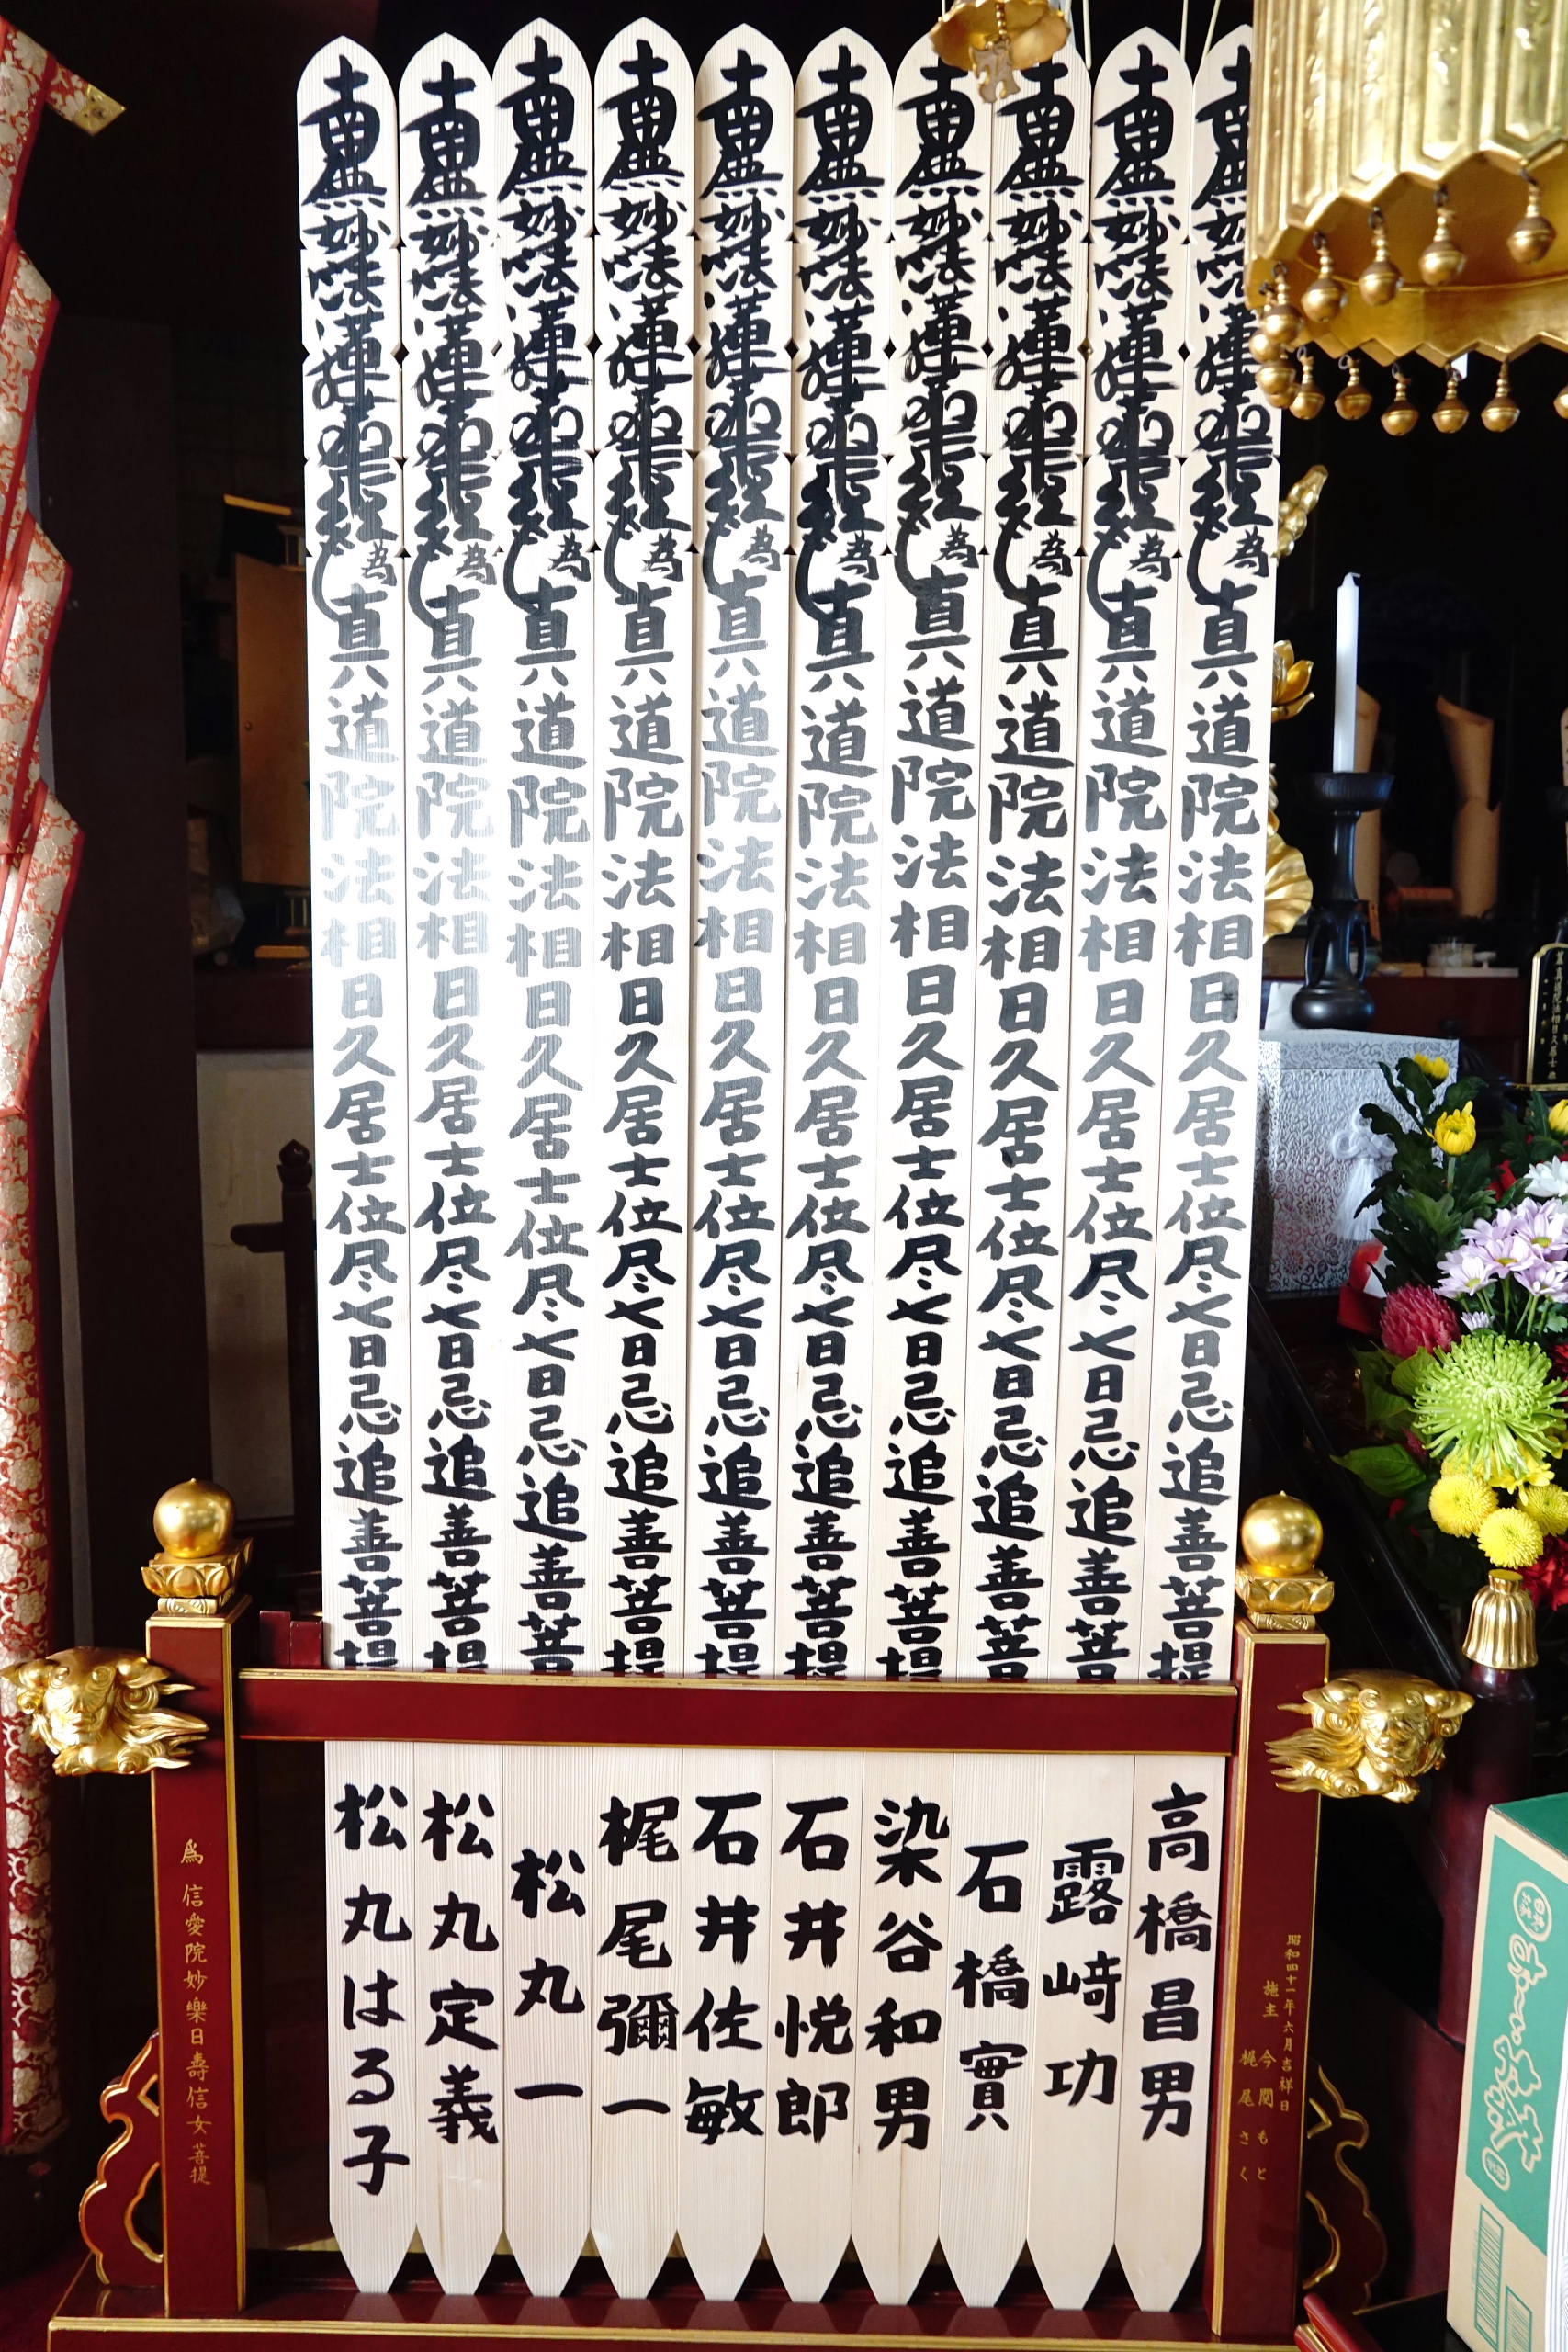 南無妙法蓮華經為真道院法相日久居士位尽七日忌追善菩提
南無妙法蓮華經為真道院法相日久居士位尽七日忌追善菩
南無妙法蓮華經為真道院法相日久居士位尽七日忌追善菩
南無妙法蓮華經為真道院法相日久居士位尽七日忌追善菩提
南無妙法蓮華經為真道院法相日久居士位尽七日忌追善菩提
南無妙法蓮華經為真道院法相日久居士位尽七日忌追善菩提
南無妙法蓮華經為真道院法相日久居士位尽七日忌追善菩提
南無妙法蓮華經為真道院法相日久居士位尽七日忌追善菩
南無妙法蓮華經為真道院法相日久居士位尽七日忌追善菩提
南無妙法蓮華經為真道院法相日久居士位尽七日忌追善菩提
高橋昌男
露崎功
石橋實
染谷和男
石井悦郎
石井佐敏
梶尾彌一
松丸一
松丸定義
松丸はる子
昭和四十一年六月吉祥日
施主 今関もと
梶尾さく
爲 信愛院妙樂日壽信女菩提